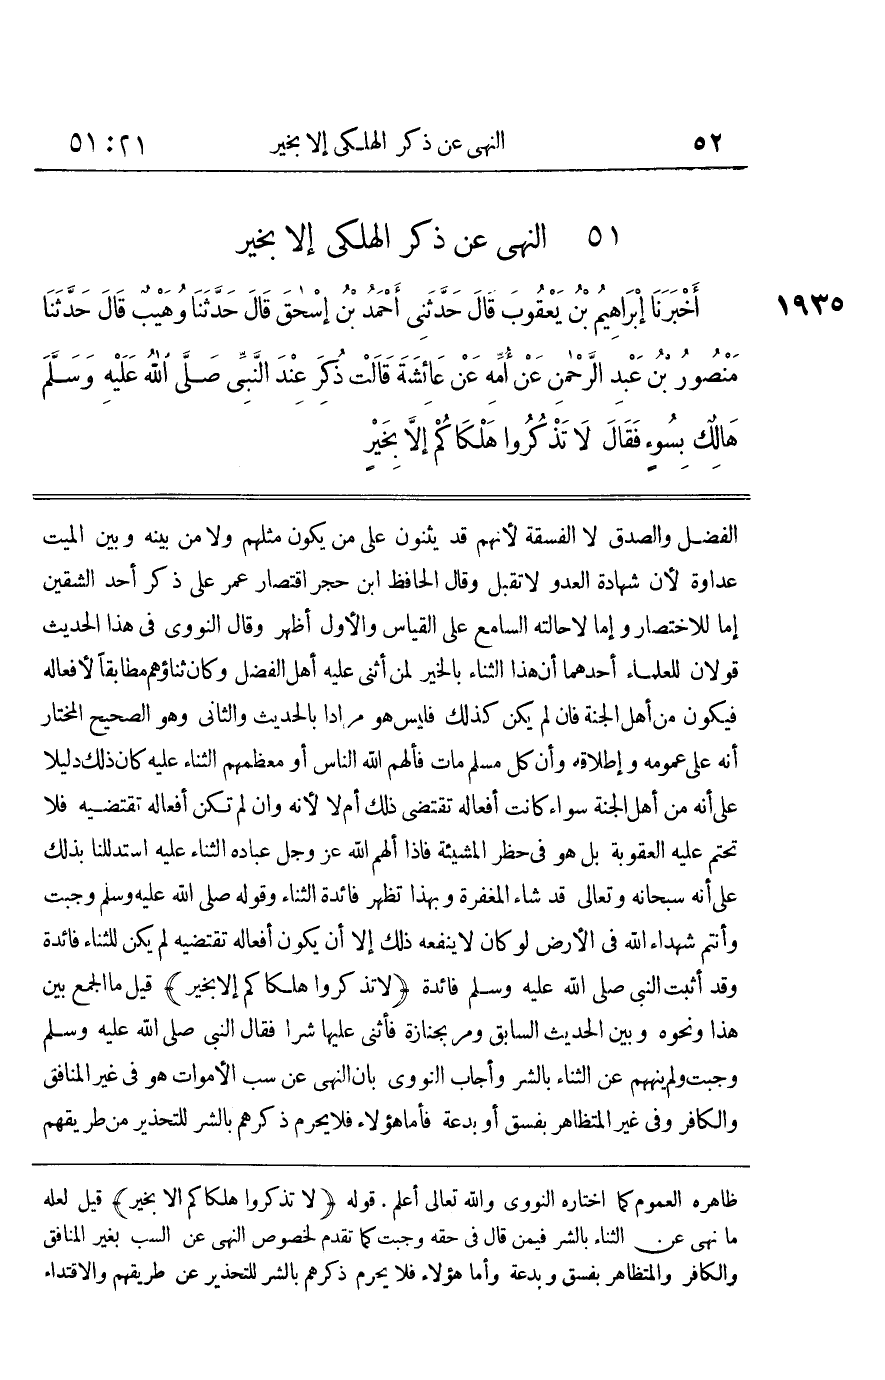 ٥٢ النهى عن ذكر الهلكى إلا بخير ٢١ : ٥١
٥١ النهى عن ذكر الهلكى إلا بخير
١٩٣٥ أَخْبَرَنَا إِبْرَاهِيمُ بْنُ يَعْقُوبَ قَالَ حَدَّثَنِى أَحْمَدُ بْنُ إِسْحٰقَ قَالَ حَدَّثَنَا وُهَيْبٌ قَالَ حَدَّثَنَا
مَنْصُورُ بْنُ عَبْدِ الرَّحْمٰنِ عَنْ أُمِّهِ عَنْ عَائِشَةَ قَالَتْ ذُكِرَ عِنْدَ النَّبِىِّ صَلَّى اللهُ عَلَيْهِ وَسَلَّمَ
هَالِكٌ بِسُوءٍ فَقَالَ لَا تَذْكُرُوا هَلْكَاكُمْ إِلَّا بِخَيْرٍ
الفضل والصدق لا الفسقة لأنهم قد يثنون على من يكون مثلهم ولا من بينه وبين الميت
عداوة لأن شهادة العدو لاتقبل وقال الحافظ ابن حجر اقتصار عمر على ذكر أحد الشقين
إما للاختصار وإما لاحالته السامع على القياس والأول أظهر وقال النووى فى هذا الحديث
قولان للعلماء أحدهما أن هذا الثناء بالخير لمن أثنى عليه أهل الفضل وكان ثناؤهم مطابقاً لأفعاله
فيكون من أهل الجنة فان لم يكن كذلك فليس هو مرادا بالحديث والثانى وهو الصحيح المختار
أنه على عمومه وإطلاقه وأن كل مسلم مات فألهم الله الناس أو معظمهم الثناء عليه كان ذلك دليلا
على أنه من أهل الجنة سواء كانت أفعاله تقتضى ذلك أم لا لأنه وان لم تكن أفعاله تقتضيه فلا
تحتم عليه العقوبة بل هو فى حظر المشيئة فاذا ألهم الله عز وجل عباده الثناء عليه استدللنا بذلك
على أنه سبحانه وتعالى قد شاء المغفرة وبهذا تظهر فائدة الثناء وقوله صلى الله عليه وسلم وجبت
وأنتم شهداء الله فى الأرض لو كان لاينفعه ذلك إلا أن يكون أفعاله تقتضيه لم يكن للثناء فائدة
وقد أثبت النبى صلى الله عليه وسلم فائدة ﴿لاتذكروا هلكاكم إلا بخير﴾ قيل ما الجمع بين
هذا ونحوه وبين الحديث السابق ومر بجنازة فأثنى عليها شرا فقال النبى صلى الله عليه وسلم
وجبت ولم ينههم عن الثناء بالشر وأجاب النووى بان النهى عن سب الأموات هو فى غير المنافق
والكافر وفى غير المتظاهر بفسق أو بدعة فأما هؤلاء فلا يحرم ذكرهم بالشر للتحذير من طريقهم
ظاهره العموم كما اختاره النووى والله تعالى أعلم . قوله ﴿لا تذكروا هلكاكم الا بخير﴾ قيل لعله
ما نهى عن الثناء بالشر فيمن قال فى حقه وجبت كما تقدم لخصوص النهى عن السب بغير المنافق
والكافر والمتظاهر بفسق وبدعة وأما هؤلاء فلا يحرم ذكرهم بالشر للتحذير عن طريقهم والاقتداء